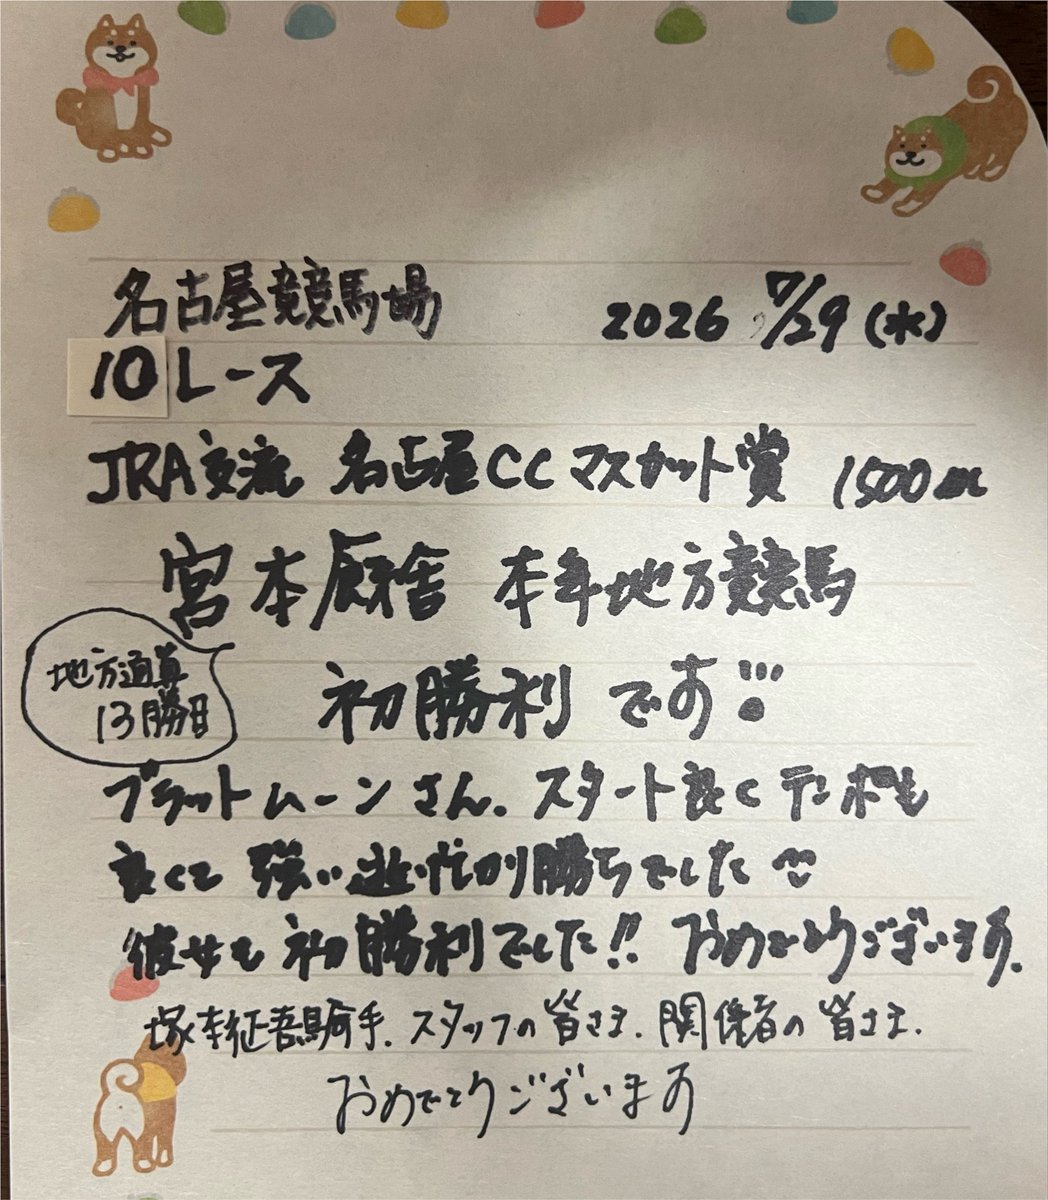 名古屋競馬場 2026 7/29(水)
10レース
JRA交流 名古屋CCマスカット賞 1500m
宮本厩舎 本年地方競馬
地方通算
13勝目
初勝利です!!
プラットムーンさん、スタート良くテンポも
良くて強い逃げ切り勝ちでした
彼女も初勝利でした!! おめでとうございます。
塚本征吾騎手、スタッフの皆さま、関係者の皆さま、
おめでとうございます